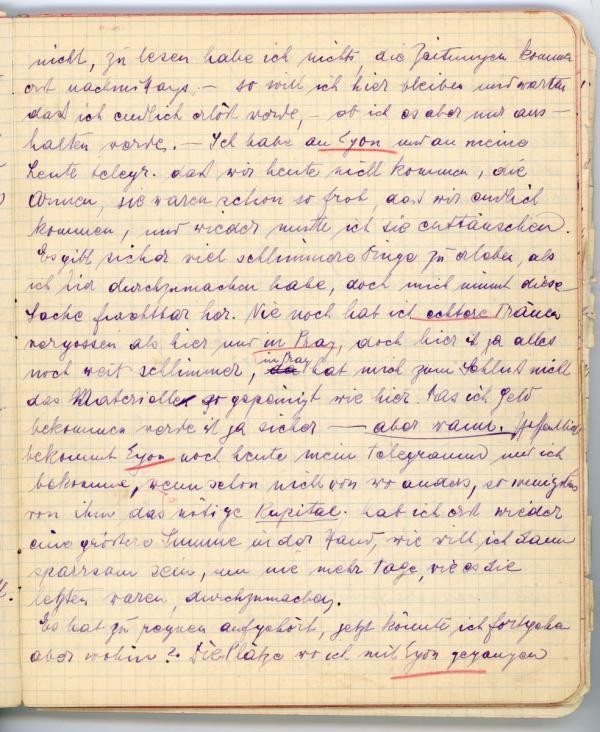 nicht, zu lesen habe ich nichts die Zeitungen kommen
erst nachmittags, — so will ich hier bleiben und warten
dass ich endlich erlöst werde, — ob ich es aber nur aus-
halten werde. — Ich habe an Egon und an meine
Leute telegr. dass wir heute nicht kommen, die
Armen, sie waren schon so froh, dass wir endlich
kommen, und wieder musste ich sie enttäuschen.
Es gibt sicher viel schlimmere Dinge zu erleben, als
ich hier durchzumachen habe, doch mich nimmt diese
Sache furchtbar her. Nie noch hab ich echtere Tränen
vergossen als hier und in Prag, doch hier ist ja alles
noch weit schlimmer, in Prag hat mich zum Schluss nicht
das Materielle so gepeinigt wie hier. Das ich Geld
bekommen werde ist ja sicher — aber wann. Hoffentlich
bekommt Egon noch heute mein Telegramm und ich
bekomme, wenn schon nicht von wo anders, so wenigstens
von ihm das nötige Kapital. hab ich erst wieder
eine grössere Summe in der Hand, wie will ich dann
sparsam sein, um nie mehr Tage, wie es die
letzten waren, durchzumachen.
Es hat zu regnen aufgehört, jetzt könnte ich fortgehen
aber wohin? Die Plätze wo ich mit Egon gegangen